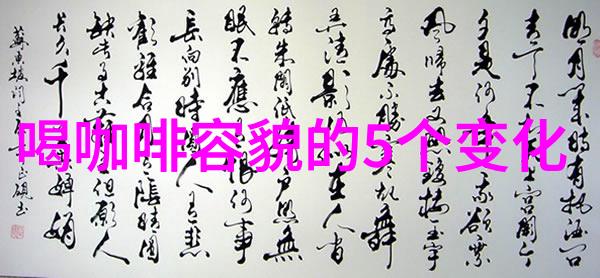 喝咖啡容貌的5个变化
明月幾時有把酒问
青天不知
宫阙今
夕是何
我欲乘
风归去又恐琼楼玉宇
高處不勝寒起舞
弄清影何似在人间
转朱阁低绮户照無
眠不應有恨何事
長向别時
人有悲
歡離合月有陰晴圆
缺此事古難全但願人
長久千里共嬋娟
蘇東坡词